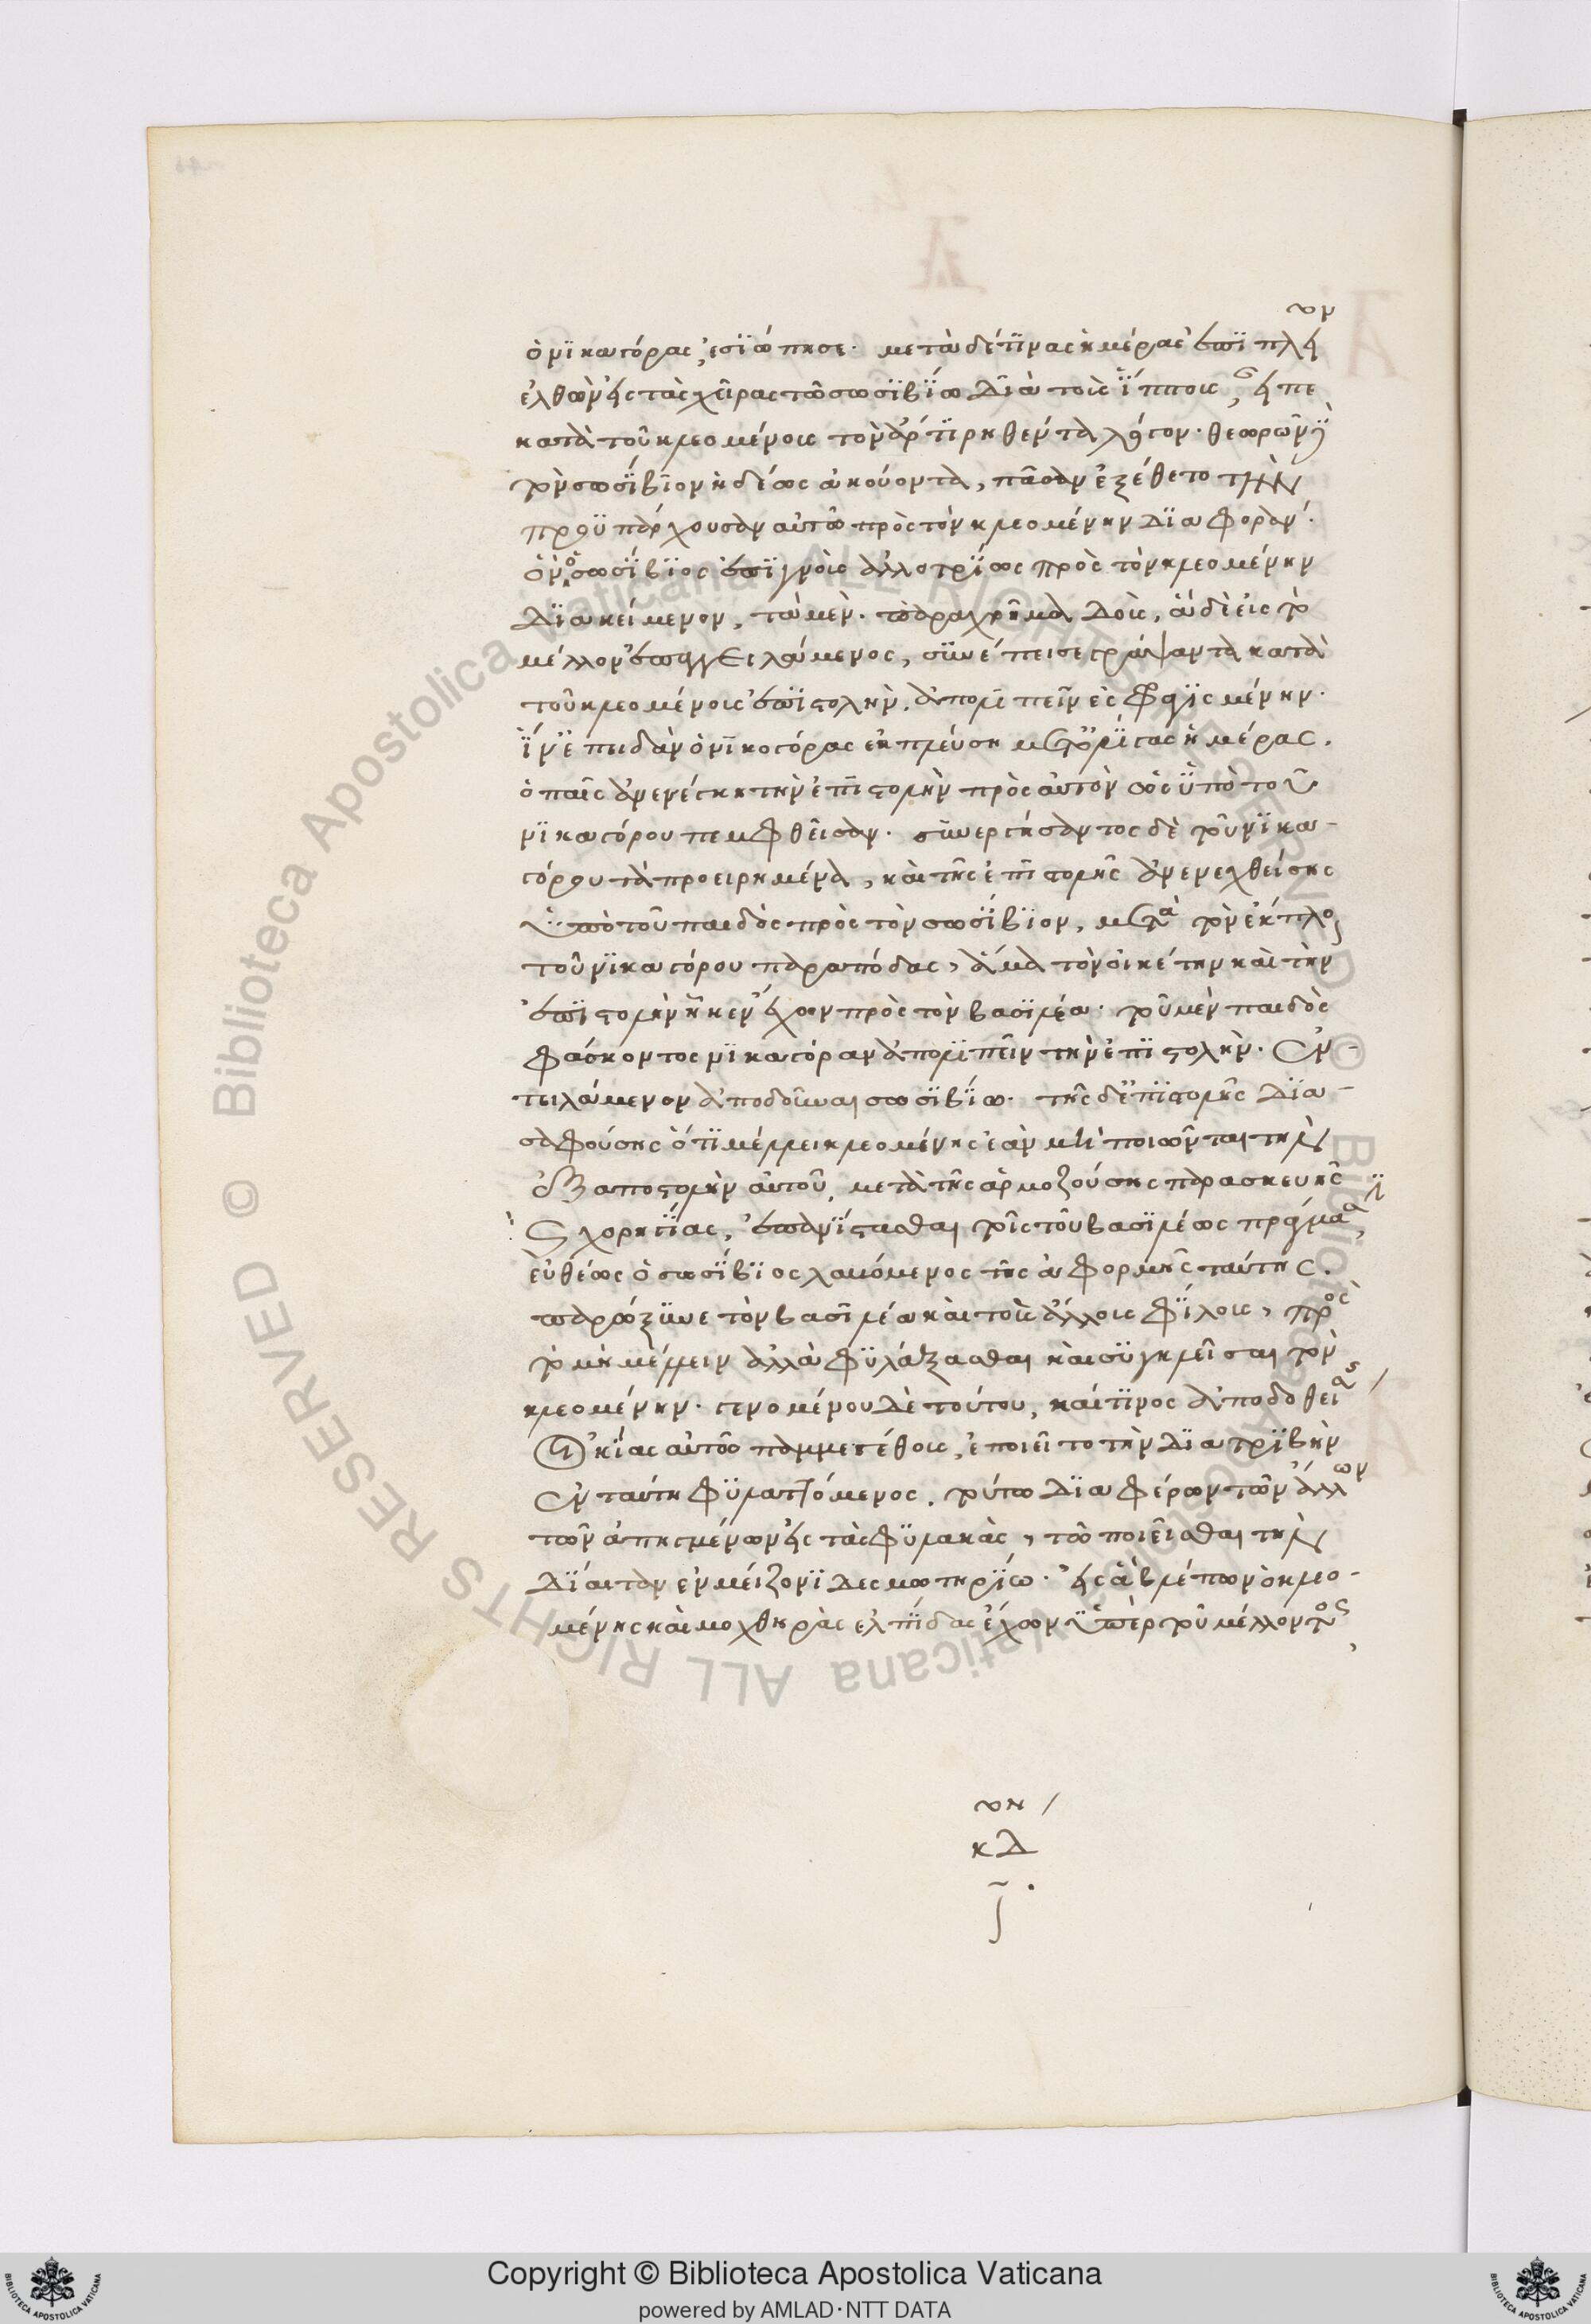 ὁ νικαγόρας, ἐσιώπησε· μετὰ δέ τινας ἡμέρας ἐπὶ πλεῖον
ἐλθὼν εἰς τὰς χεῖρας τῶ σωσιβίω διὰ τοὺς ἵππους, εἶπε
κατὰ τοῦ κλεομένους τὸν ἄρτι ρηθέντα λόγον· θεωρῶν δὲ
τὸν σωσίβιον ἡδέως ἀκούοντα, πᾶσαν ἐξέθετο τὴν
προϋπάρχουσαν αὐτῶ πρὸς τὸν κλεομένην διαφοράν·
ὃν ὁ σωσίβιος ἐπιγνοὺς ἀλλοτρίως πρὸς τὸν κλεομένην
διακείμενον, τὰ μὲν· παραχρῆμα δοὺς, ἃ δὲ εἰς τὸ
μέλλον ἐπαγγειλάμενος, συνέπεισε γράψαντα κατὰ
τοῦ κλεομένους ἐπιστολὴν, ἀπολιπεῖν ἐσφραγισμένην·
ἵν' ἐπειδὰν ὁ νικαγόρας ἐκπλεύση μετ' ὀλίγας ἡμέρας,
ὁ παῖς ἀνενέγκη τὴν ἐπιστολὴν πρὸς αὐτὸν ὡς ὑπὸ τοῦ
νικαγόρου πεμφθεῖσαν· συνεργήσαντος δὲ τοῦ νικα-
γόρου τὰ προειρημένα, καὶ τῆς ἐπιστολῆς ἀνενεχθείσης
ὑπὸ τοῦ παιδὸς πρὸς τὸν σωσίβιον, μετὰ τὸν ἔκπλουν
τοῦ νικαγόρου παραπόδας, ἅμα τὸν οἰκέτην καὶ τὴν
ἐπιστολὴν ἧκεν ἔχων πρὸς τὸν βασιλέα· τοῦ μὲν παιδὸς
φάσκοντος νικαγόραν ἀπολιπεῖν τὴν ἐπιστολὴν· ἐν-
τειλάμενον ἀποδοῦναι σωσιβίω· τῆς δ' ἐπιστολῆς δια-
σαφούσης ὅτι μέλλει κλεομένης ἐὰν μὴ ποιῶνται τὴν
ἐξαποστολὴν αὐτοῦ, μετὰ τῆς ἁρμοζούσης παρασκευῆς
καὶ χορηγίας, ἐπανίστασθαι τοῖς τοῦ βασιλέως πράγμασι,
εὐθέως ὁ σωσίβιος λαβόμενος τῆς ἀφορμῆς ταύτης,
παρώξυνε τὸν βασιλέα καὶ τοὺς ἄλλους φίλους, πρὸς
τὸ μὴ μέλλειν ἀλλὰ φυλάξασθαι καὶ συγκλεῖσαι τὸν
κλεομένην· γενομένου δὲ τούτου, καί τινος ἀποδοθείσης
οἰκίας αὐτῶ παμμεγέθους, ἐποιεῖτο τὴν διατριβὴν
ἐν ταύτη φυλαττόμενος, τούτω διαφέρων τῶν ἄλλων
τῶν ὑπηγμένων εἰς τὰς φυλακὰς, τῶ ποιεῖσθαι τὴν
δίαιταν ἐν μείζονι δεσμωτηρίω· εἰς ἃ βλέπων ὁ κλεο-
μένης καὶ μοχθηρὰς ἐλπίδας ἔχων ὑπὲρ τοῦ μέλλοντος,
κδ